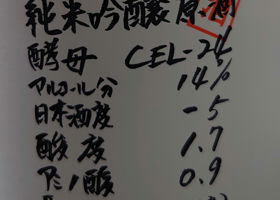 純米吟醸原酒
酵母 CEL-24
アルコール分 14%
日本酒度 -5
酸度 1.7
アミノ酸 0.9